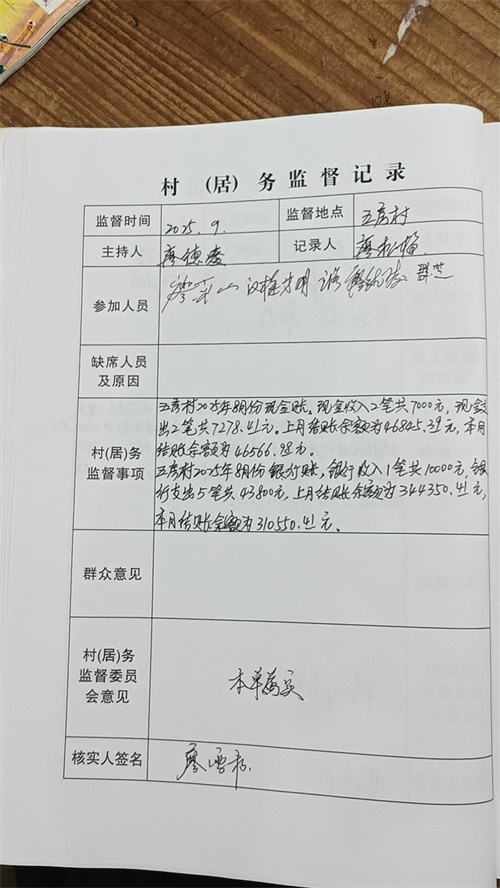 村（居）务监督记录
监督时间 2025.9. 监督地点 五彦村
主持人 廖德 记录人 廖
参加人员 山 群英
缺席人员
及原因
村(居)务
监督事项
五彦村2025年8月份现金账。现金收入2笔共7000元，现金支
出2笔共7278.41元。上月结账余额为46845.39元，本月
结账余额为46566.98元。
五彦村2025年8月份银行账，银行收入1笔共10000元，银
行支出5笔共43800元，上月结账余额为344350.41元，
本月结账余额为310550.41元。
群众意见
村(居)务
监督委员
会意见
本单属实
核实人签名 廖雪